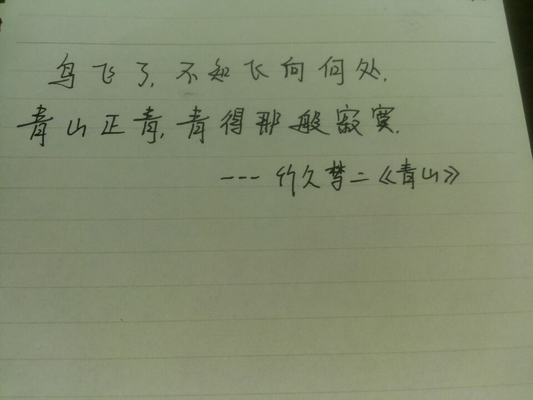 鸟飞了,不知飞向何处.
青山正青,青得那般寂寞.
---竹久梦二《青山》